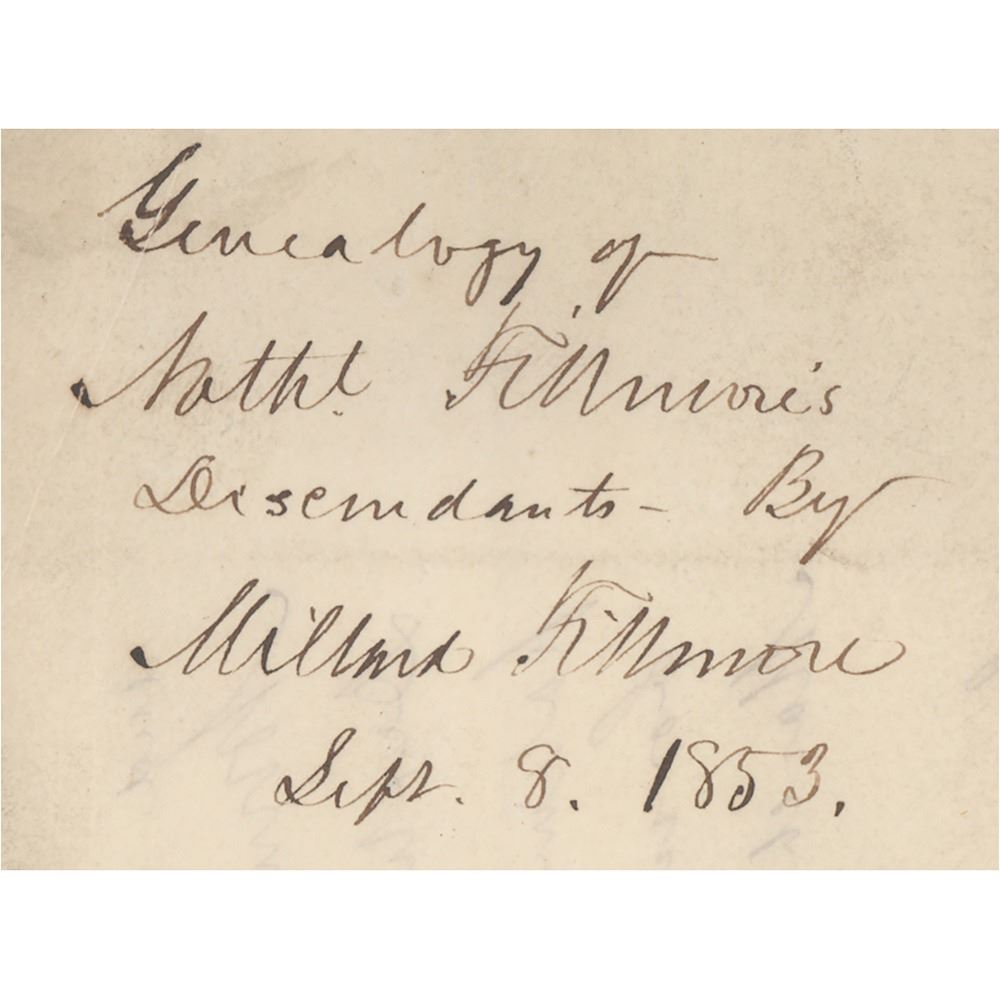 Genealogy of
Nathl. Fillmore's
Descendants - By
Millard Fillmore
Sept. 8. 1853.